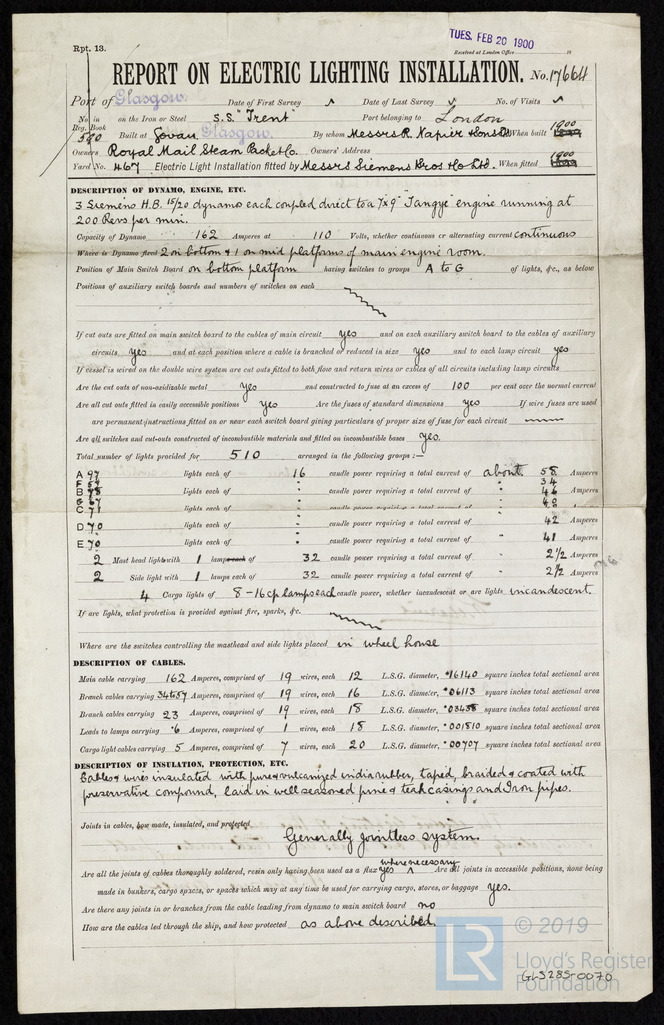 Rpt. 13.
TUES. FEB 20 1900
Received at London Office 19
REPORT ON ELECTRIC LIGHTING INSTALLATION. No. 17664
Port of Glasgow. Date of First Survey Date of Last Survey No. of Visits
No. in Reg. Book on the Iron or Steel S.S. "Trent" Port belonging to London
Built at Govan, Glasgow. By whom Messrs R. Napier & Sons Ld When built 1900
Owners Royal Mail Steam Packet Co. Owners' Address
Yard No. 467 Electric Light Installation fitted by Messrs Siemens Bros & Co Ltd. When fitted 1900
DESCRIPTION OF DYNAMO, ENGINE, ETC.
3 Siemens H.B. 15/20 dynamo each coupled direct to a 7x9" "Tangye" engine running at
200 Revs per min.
Capacity of Dynamo 162 Amperes at 110 Volts, whether continuous or alternating current continuous
Where is Dynamo fixed 2 on bottom & 1 on mid platforms of main engine room.
Position of Main Switch Board on bottom platform having switches to groups A to G of lights, &c., as below
Positions of auxiliary switch boards and numbers of switches on each
If cut outs are fitted on main switch board to the cables of main circuit yes and on each auxiliary switch board to the cables of auxiliary
circuits yes and at each position where a cable is branched or reduced in size yes and to each lamp circuit yes
If vessel is wired on the double wire system are cut outs fitted to both flow and return wires or cables of all circuits including lamp circuits
Are the cut outs of non-oxidizable metal yes and constructed to fuse at an excess of 100 per cent over the normal current
Are all cut outs fitted in easily accessible positions yes Are the fuses of standard dimensions yes If wire fuses are used
are permanent instructions fitted on or near each switch board giving particulars of proper size of fuse for each circuit
Are all switches and cut-outs constructed of incombustible materials and fitted on incombustible bases yes.
Total number of lights provided for 510 arranged in the following groups :—
A 97 lights each of 16 candle power requiring a total current of about 58 Amperes
F 57 34
B 78 lights each of " candle power requiring a total current of " 46 Amperes
G 67 40
C 71 lights each of " candle power requiring a total current of " Amperes
D 70 lights each of " candle power requiring a total current of " 42 Amperes
E 70 lights each of " candle power requiring a total current of " 41 Amperes
2 Mast head light with 1 lamp each of 32 candle power requiring a total current of " 2 1/2 Amperes
2 Side light with 1 lamps each of 32 candle power requiring a total current of " 2 1/2 Amperes
4 Cargo lights of 8 - 16 cp lamps each candle power, whether incandescent or arc lights incandescent.
If arc lights, what protection is provided against fire, sparks, &c.
Where are the switches controlling the masthead and side lights placed in wheel house
DESCRIPTION OF CABLES.
Main cable carrying 162 Amperes, comprised of 19 wires, each 12 L.S.G. diameter, .16140 square inches total sectional area
Branch cables carrying 34 to 57 Amperes, comprised of 19 wires, each 16 L.S.G. diameter, .06113 square inches total sectional area
Branch cables carrying 23 Amperes, comprised of 19 wires, each 18 L.S.G. diameter, .03438 square inches total sectional area
Leads to lamps carrying .6 Amperes, comprised of 1 wires, each 18 L.S.G. diameter, .001810 square inches total sectional area
Cargo light cables carrying 5 Amperes, comprised of 7 wires, each 20 L.S.G. diameter, .00707 square inches total sectional area
DESCRIPTION OF INSULATION, PROTECTION, ETC.
Cables & wires insulated with pure & vulcanized indiarubber, taped, braided & coated with
preservative compound, laid in well seasoned pine & teak casings and Iron pipes.
Joints in cables, how made, insulated, and protected
Generally jointless system.
where necessary
Are all the joints of cables thoroughly soldered, resin only having been used as a flux yes Are all joints in accessible positions, none being
made in bunkers, cargo spaces, or spaces which may at any time be used for carrying cargo, stores, or baggage yes.
Are there any joints in or branches from the cable leading from dynamo to main switch board no
How are the cables led through the ship, and how protected as above described.
LR © 2019
Lloyd's Register
Foundation
GLS285-0070